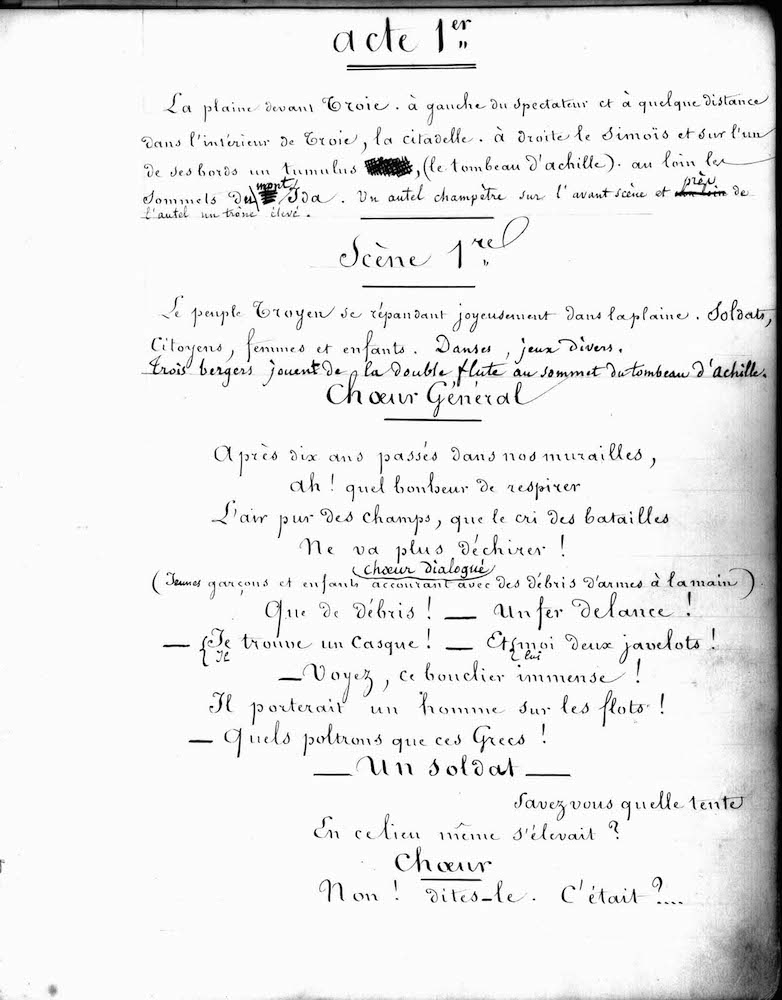 acte 1er
La plaine devant Troie. à gauche du spectateur et à quelque distance
dans l'intérieur de Troie, la citadelle. à droite le Simoïs et sur l'un
de ses bords un tumulus, (le tombeau d'achille). au loin les
sommets du mont Ida. Un autel champêtre sur l'avant scène et près de
l'autel un trône élevé.
Scène 1re
Le peuple Troyen se répandant joyeusement dans la plaine. Soldats,
Citoyens, femmes et enfants. Danses, jeux divers.
trois bergers jouent de la double flute au sommet du tombeau d'achille.
Chœur Général
Après dix ans passés dans nos murailles,
ah! quel bonheur de respirer
L'air pur des champs, que le cri des batailles
Ne va plus déchirer!
chœur dialogué
(Jeunes garçons et enfants accourant avec des débris d'armes à la main)
Que de débris! — Un fer de lance!
— Je trouve un casque! — Et moi deux javelots!
Il lui
— Voyez, ce bouclier immense!
Il porterait un homme sur les flots!
— Quels poltrons que ces Grecs!
— Un soldat —
Savez vous quelle tente
En ce lieu même s'élevait?
Chœur
Non! dites-le. C'était?....